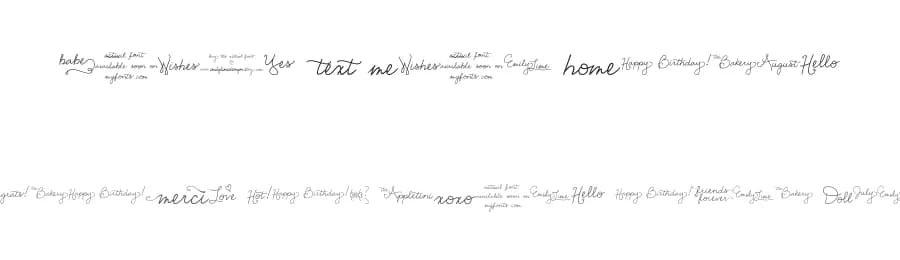 babe actual font available soon on myfonts.com Wishes buy the actual font @ Yes text me Wishes actual font available soon on myfonts.com EmilyLime home Happy Birthday! The Bakery August Hello
grats! The Bakery Happy Birthday! merci Love Hot! Happy Birthday! The Appletini xoxo actual font available soon on myfonts.com EmilyLime Hello Happy Birthday! friends forever EmilyLime The Bakery Doll July Emily